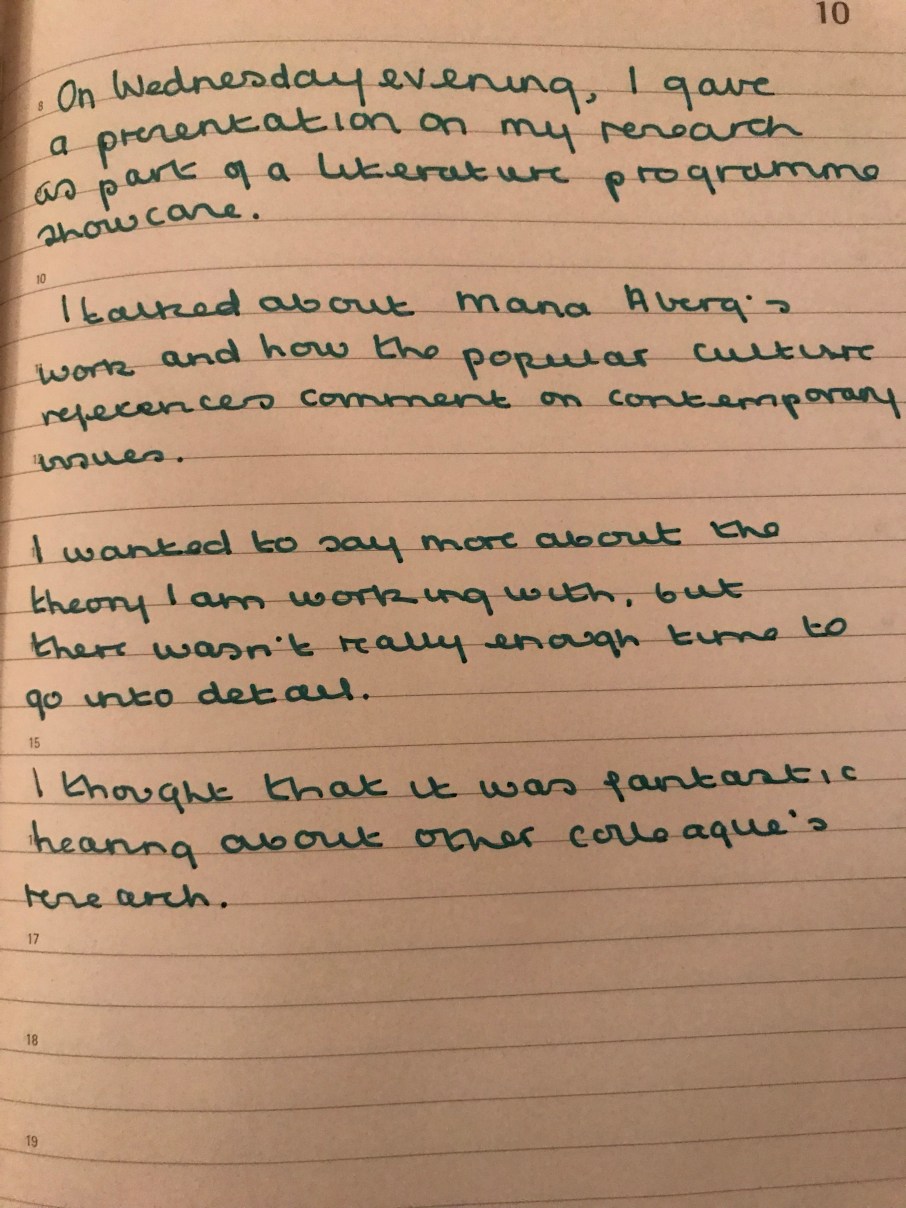 10
8
On Wednesday evening, I gave
a presentation on my research
as part of a literature programme
showcase.
10
I talked about Maria Aberg's
work and how the popular culture
references comment on contemporary
issues.
I wanted to say more about the
theory I am working with, but
there wasn't really enough time to
go into detail.
15
I thought that it was fantastic
hearing about other colleague's
research.
17
18
19